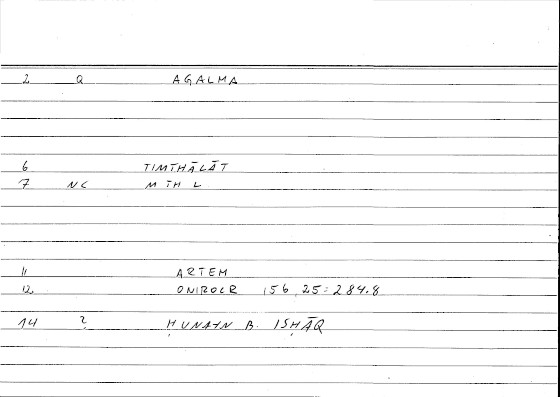 2 Q AGALMA
6 TIMTHĀLĀT
7 NC M TH L
11 ARTEM
12 ONIROCR 156, 25 = 284.8
14 2 ḤUNAYN B. ISḤĀQ